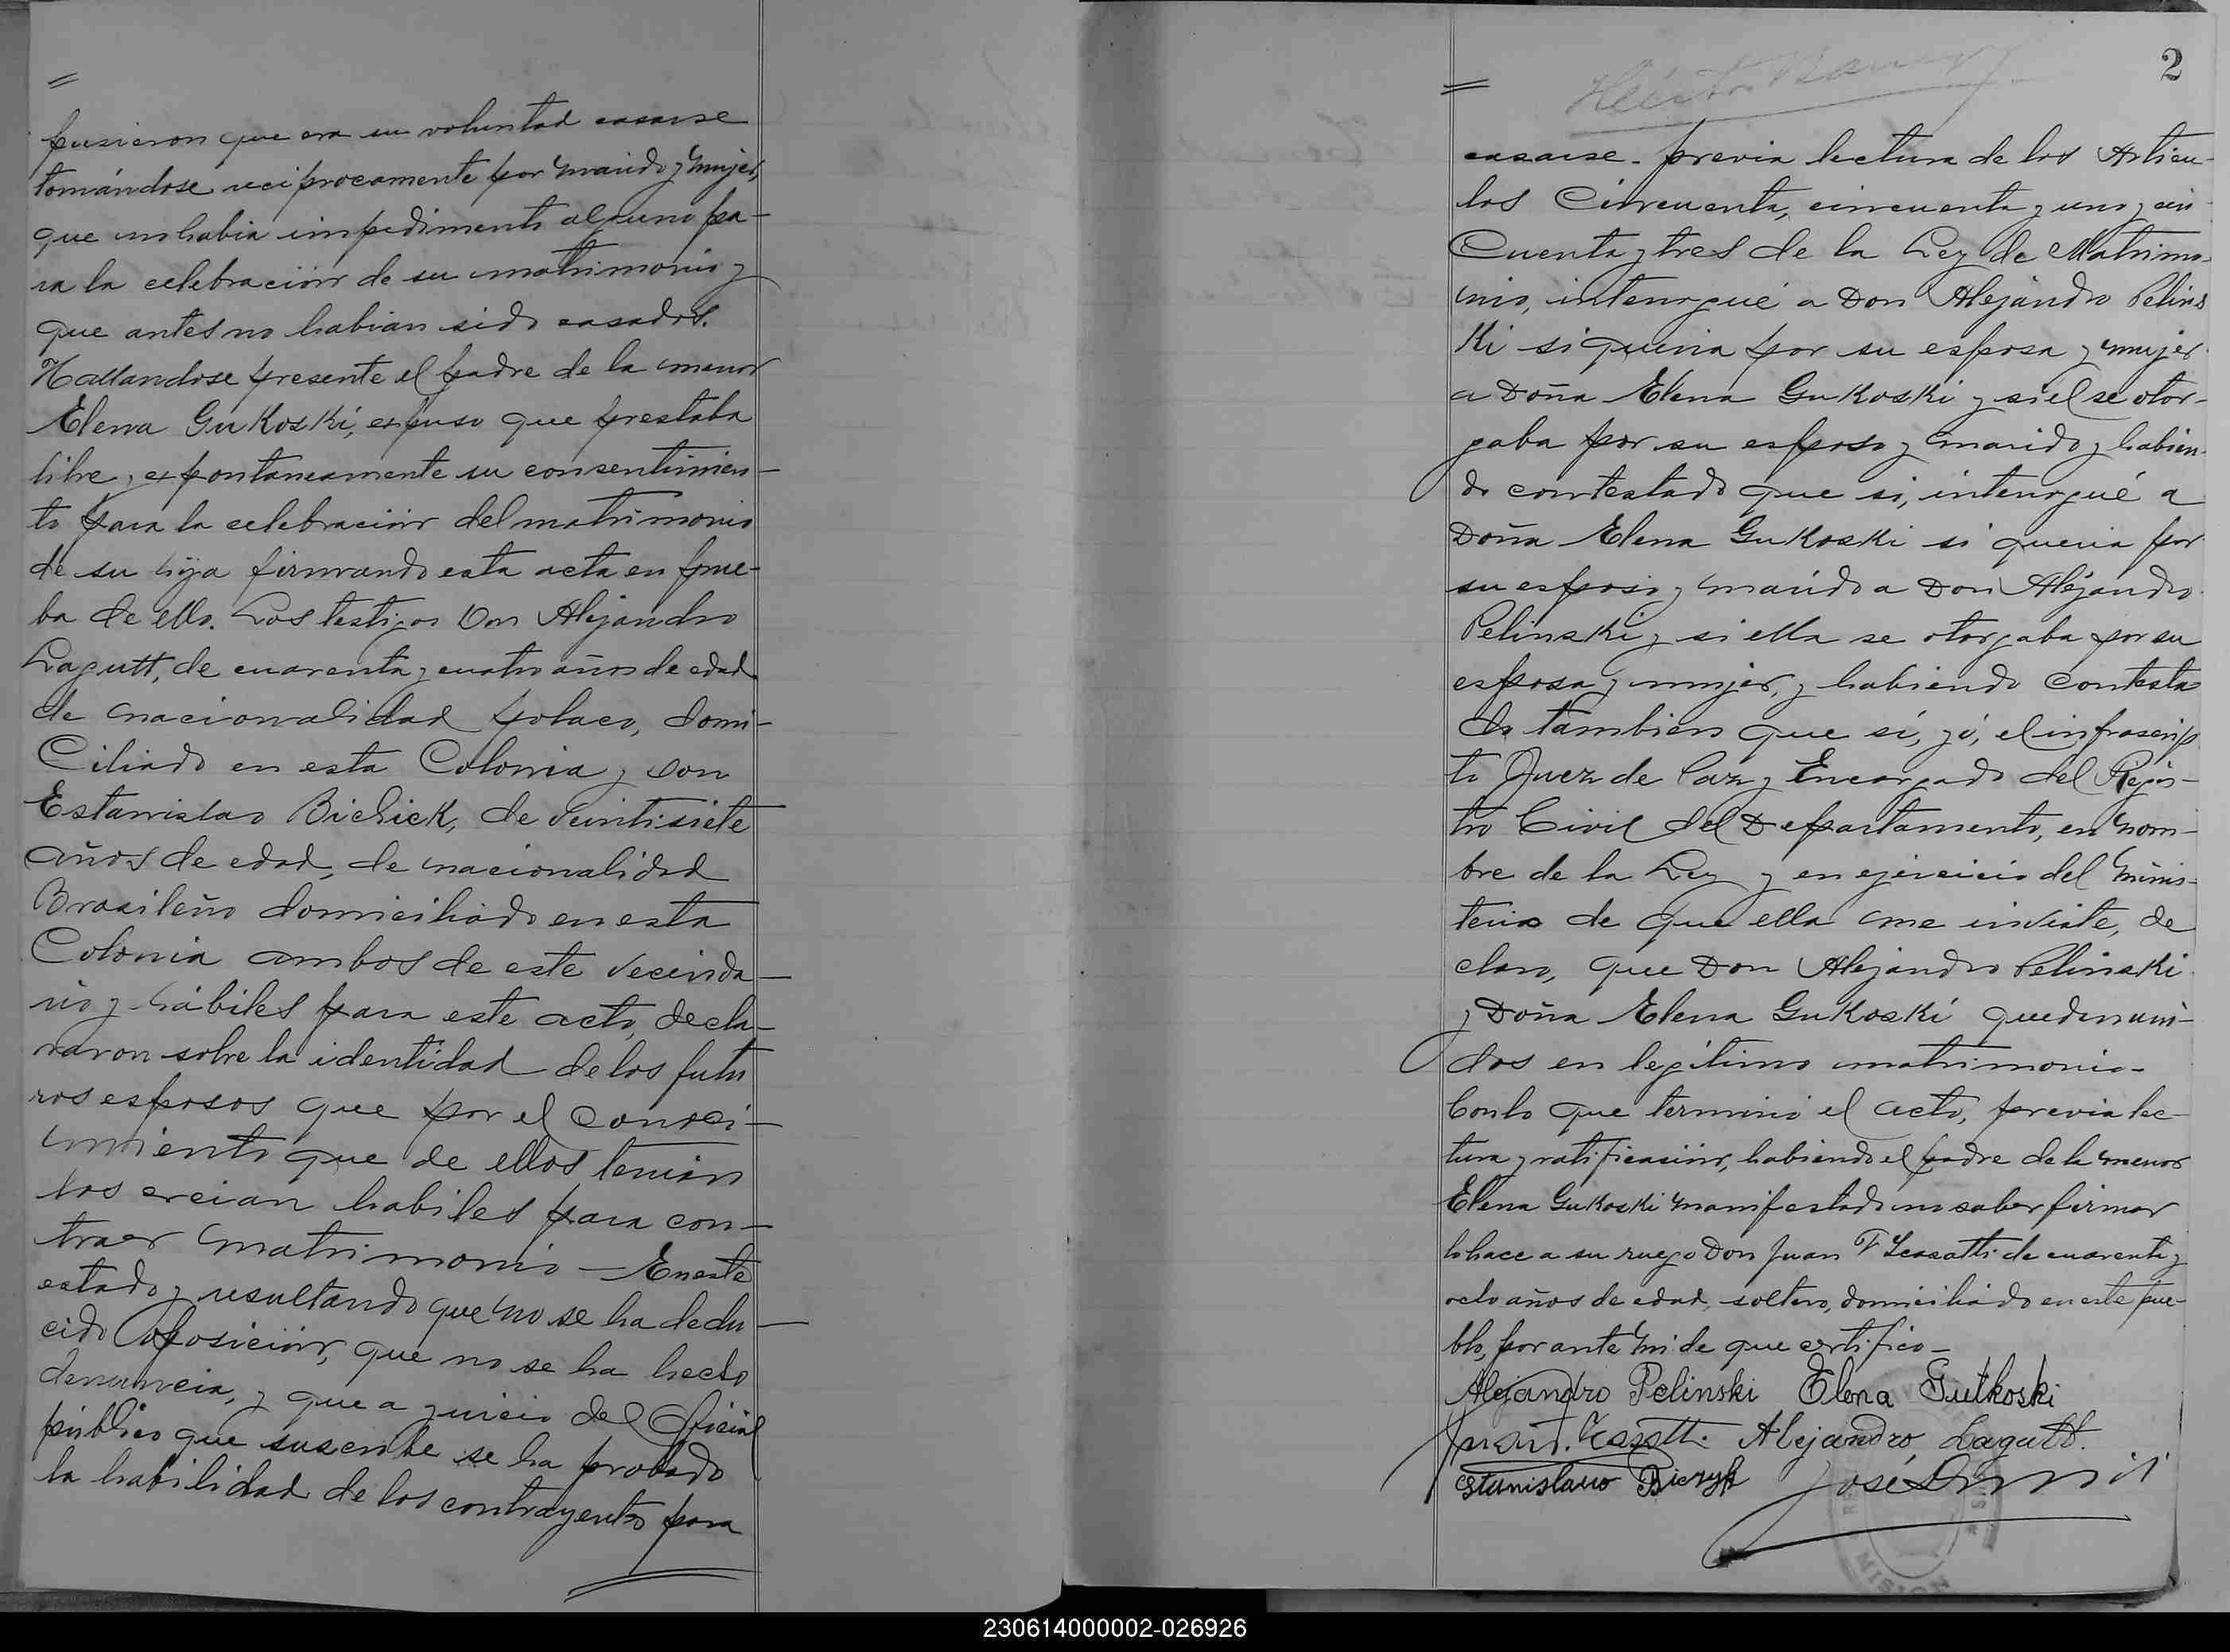 =
pusieron que era su voluntad casarse
tomándose reciprocamente por marido y mujer,
que no habia impedimento alguno pa-
ra la celebración de su matrimonio y
que antes no habian sido casados.
Hallandose presente el padre de la menor
Elena Gukoski, expuso que prestaba
libre y expontaneamente su consentimien-
to para la celebración del matrimonio
de su hija firmando esta acta en prue-
ba de ello. Los testigos Don Alejandro
Lagutt, de cuarenta y cuatro años de edad
de nacionalidad polaco, domi-
ciliado en esta Colonia y Don
Estanislao Bichick, de veintisiete
años de edad, de nacionalidad
Brasileño domiciliado en esta
Colonia ambos de este vecinda-
rio y hábiles para este acto, decla-
raron sobre la identidad de los futu
ros esposos que por el conoci-
miento que de ellos tenian
los creian habiles para con-
traer matrimonio - En este
estado y resultando que no se ha dedu-
cido oposición, que no se ha hecho
denuncia, y que a juicio del Oficial
público que suscribe se ha probado
la habilidad de los contrayentes para
2
=
casarse - previa lectura de los Articu-
los Cincuenta, cincuenta y uno y cin-
cuenta y tres de la Ley de Matrimo-
nio, interrogué a Don Alejandro Pelins
ki si queria por su esposa y mujer
a Doña Elena Gukoski y si el se otor-
gaba por su esposo y marido y habien-
do contestado que si, interrogué a
Doña Elena Gukoski si queria por
su esposo y marido a Don Alejandro
Pelinski y si ella se otorgaba por su
esposa y mujer, y habiendo contesta
do tambien que sí, yó, el infrascrip
to Juez de Paz y Encargado del Regis-
tro Civil del Departamento, en nom-
bre de la Ley y en ejercicio del minis-
terio de que ella me inviste, de
claro, que Don Alejandro Pelinski
y Doña Elena Gukoski quedan uni-
dos en legítimo matrimonio-
Con lo que terminó el acto, previa lec-
tura y ratificación, habiendo el padre de la menor
Elena Gukoski manifestado no saber firmar
lo hace a su ruego Don Juan F de cuarenta y
ocho años de edad, soltero, domiciliado en este pue-
blo, por ante mi de que certifico -
Alejandro Pelinski Elena Gutkoski
Alejandro Lagutt.
Stanislawo Biczyk José
MISION
230614000002-026926